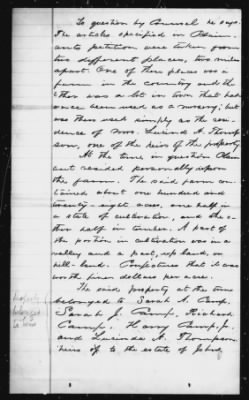 To question by Counsel he says:
The articles specified in Claim-
ants petition were taken from
two different places, two miles
apart. One of these places was a
farm in the country and the
other was a lot in town that had
once been used as a nursery; but
was then used simply as the resi-
dence of Mrs. Lucinda A. Thomp-
son, one of the heirs of the property.
At the time in question Claim-
ant resided personally upon
the farm. The said farm con-
tained about one hundred and
twenty-eight acres, one half in
a state of cultivation, and the o-
ther half in timber. A part of
the portion in cultivation was in a
valley and a part, up land, or
hill-land. Conjectures that it was
worth five dollars per acre.
The said property at the time
belonged to Sarah A. Camp,
Sarah J. Camp, Richard
Camp, Harry Camp,
and Lucinda A. Thompson
heirs of to the estate of John
Property
belonged
to heirs